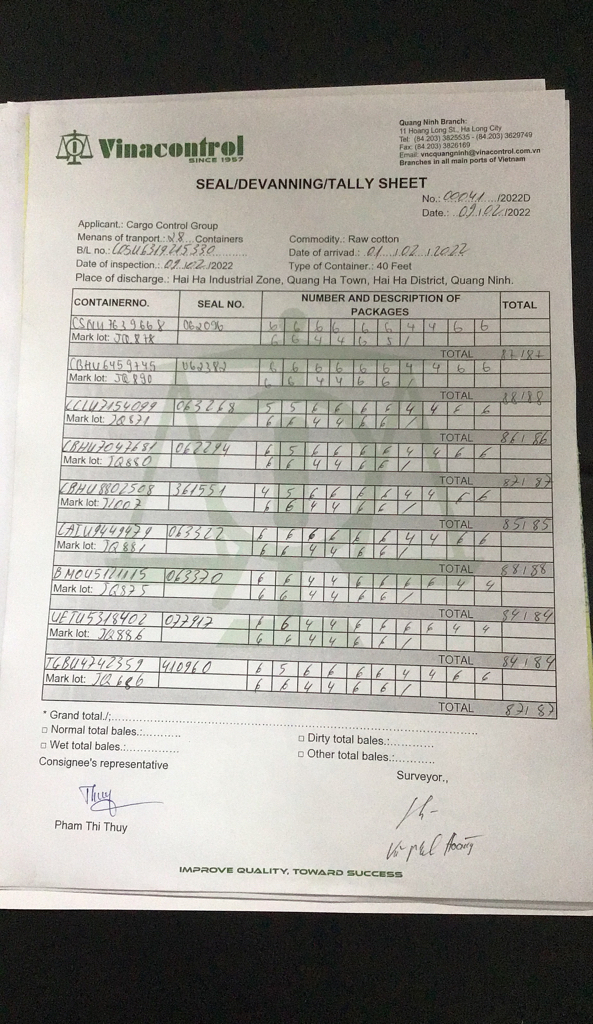 Vinacontrol
SINCE 1957
Quang Ninh Branch:
11 Hoang Long St., Ha Long City
Tel: (84.203) 3825535 - (84.203) 3629749
Fax: (84.203) 3826169
Email: vncquangninh@vinacontrol.com.vn
Branches in all main ports of Vietnam
SEAL/DEVANNING/TALLY SHEET
No.: 00041 /2022D
Date.: 09/02/2022
Applicant.: Cargo Control Group
Menans of tranport.: 28 Containers Commodity.: Raw cotton
B/L no.: COSU6319215330 Date of arrived.: 01/02/2022
Date of inspection.: 09/02/2022 Type of Container.: 40 Feet
Place of discharge.: Hai Ha Industrial Zone, Quang Ha Town, Hai Ha District, Quang Ninh.
CONTAINERNO. SEAL NO. NUMBER AND DESCRIPTION OF PACKAGES TOTAL
CSNU7639668 062096 6 6 6 6 6 6 4 4 6 6
Mark lot: JQ878 6 6 4 4 6 5 /
TOTAL 87/87
CBHU6459745 062382 6 6 6 6 6 6 4 4 6 6
Mark lot: JQ890 6 6 4 4 6 6 /
TOTAL 88/88
CCLU7154099 063268 5 5 6 6 6 6 4 4 6 6
Mark lot: JQ871 6 6 4 4 6 6 /
TOTAL 86/86
CBHU7047681 062294 6 5 6 6 6 6 4 4 6 6
Mark lot: JQ880 6 6 4 4 6 6 /
TOTAL 87/87
CBHU8802508 361551 4 5 6 6 6 6 4 4 6 6
Mark lot: J1007 6 6 4 4 6 6 /
TOTAL 85/85
CAIU9449479 063322 6 6 6 6 6 6 4 4 6 6
Mark lot: JQ881 6 6 4 4 6 6 /
TOTAL 88/88
BMOU5121115 063370 6 6 4 4 6 6 6 6 4 4
Mark lot: JQ875 6 6 4 4 6 6 /
TOTAL 84/84
UETU5318402 077917 6 6 4 4 6 6 6 6 4 4
Mark lot: JQ886 6 6 4 4 6 6 /
TOTAL 84/84
TGBU4742359 410960 6 5 6 6 6 6 4 4 6 6
Mark lot: JQ686 6 6 4 4 6 6 /
TOTAL 87/87
* Grand total./;
□ Normal total bales.: □ Dirty total bales.:
□ Wet total bales.: □ Other total bales.:
Consignee's representative Surveyor.,
Thuy
Pham Thi Thuy
IMPROVE QUALITY, TOWARD SUCCESS